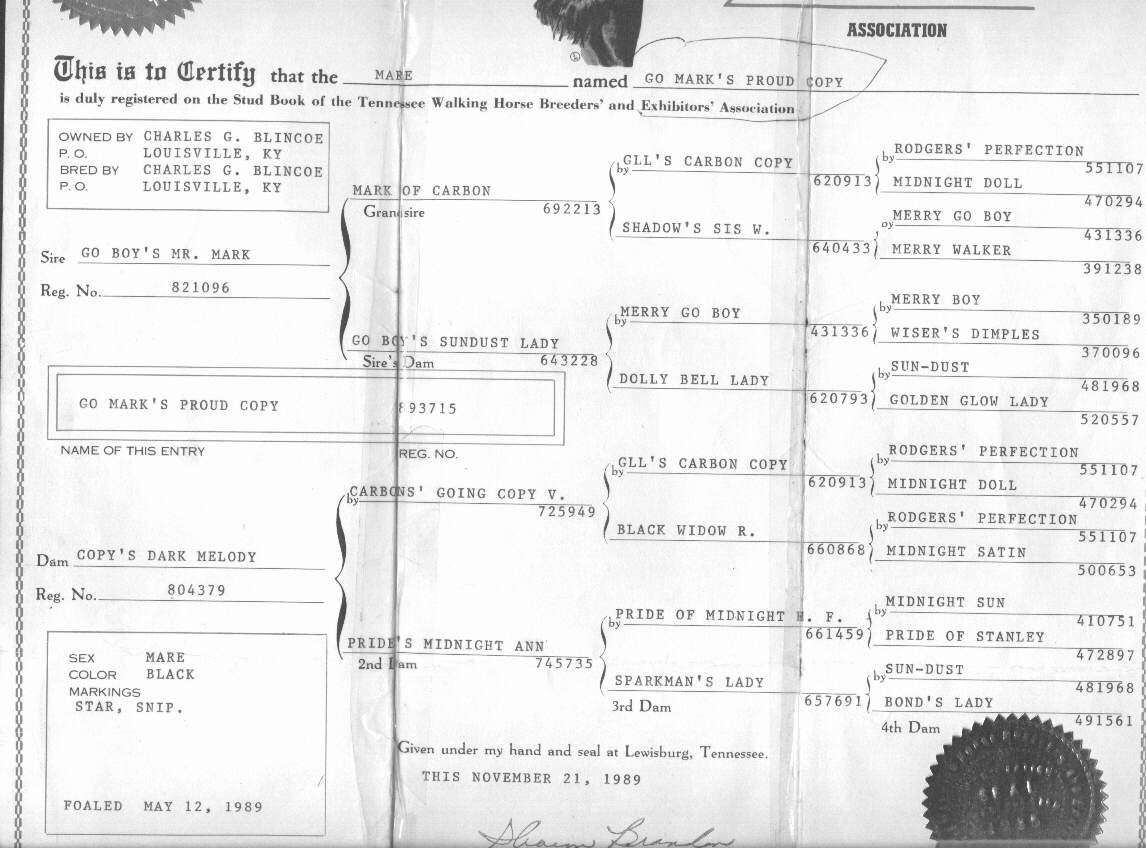 ASSOCIATION
This is to Certify that the MARE named GO MARK'S PROUD COPY
is duly registered on the Stud Book of the Tennessee Walking Horse Breeders' and Exhibitors' Association
OWNED BY CHARLES G. BLINCOE
P. O. LOUISVILLE, KY
BRED BY CHARLES G. BLINCOE
P. O. LOUISVILLE, KY
Sire GO BOY'S MR. MARK
Reg. No. 821096
MARK OF CARBON
Grandsire 692213
GO BOY'S SUNDUST LADY
Sire's Dam 643228
by GLL'S CARBON COPY
620913
SHADOW'S SIS W.
640433
by MERRY GO BOY
431336
DOLLY BELL LADY
620793
by RODGERS' PERFECTION
551107
MIDNIGHT DOLL
470294
by MERRY GO BOY
431336
MERRY WALKER
391238
by MERRY BOY
350189
WISER'S DIMPLES
370096
by SUN-DUST
481968
GOLDEN GLOW LADY
520557
GO MARK'S PROUD COPY 893715
NAME OF THIS ENTRY REG. NO.
Dam COPY'S DARK MELODY
Reg. No. 804379
by CARBONS' GOING COPY V.
725949
PRIDE'S MIDNIGHT ANN
2nd Dam 745735
by GLL'S CARBON COPY
620913
BLACK WIDOW R.
660868
by PRIDE OF MIDNIGHT H. F.
661459
SPARKMAN'S LADY
3rd Dam 657691
by RODGERS' PERFECTION
551107
MIDNIGHT DOLL
470294
by RODGERS' PERFECTION
551107
MIDNIGHT SATIN
500653
by MIDNIGHT SUN
410751
PRIDE OF STANLEY
472897
by SUN-DUST
481968
BOND'S LADY
4th Dam 491561
SEX MARE
COLOR BLACK
MARKINGS
STAR, SNIP.
FOALED MAY 12, 1989
Given under my hand and seal at Lewisburg, Tennessee.
THIS NOVEMBER 21, 1989
Sharon Brandon